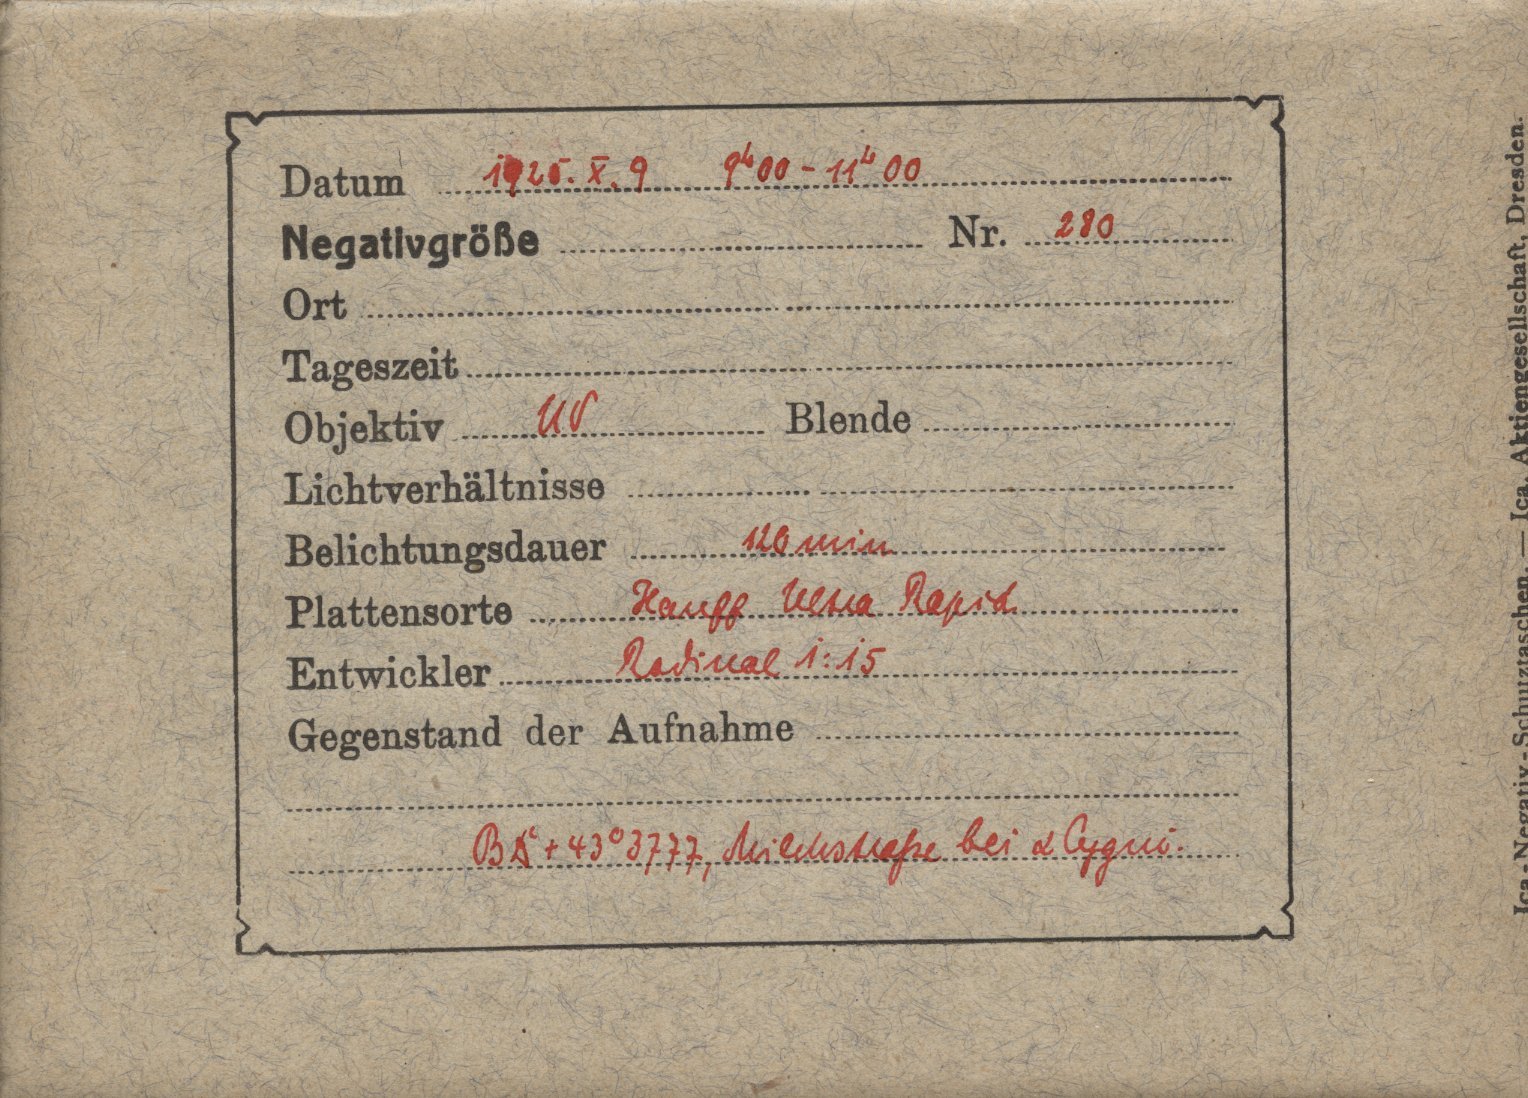 Datum 1925. X. 9 9ʰ00 - 11ʰ00
Negativgröße Nr. 280
Ort
Tageszeit
Objektiv UV Blende
Lichtverhältnisse
Belichtungsdauer 120 min
Plattensorte Hauff Ultra Rapid
Entwickler Rodinal 1:15
Gegenstand der Aufnahme
BD + 43° 3777, Milchstraße bei α Cygni.
Ica-Negativ-Schutztaschen. — Ica, Aktiengesellschaft, Dresden.